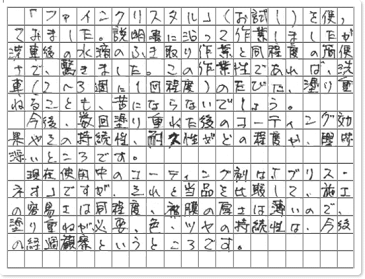 「ファインクリスタル」(お試し)を使っ
てみました。説明書に沿って作業しましたが
洗車後の水滴のふき取り作業と同程度の簡便
さで、驚きました。この作業性であれば、洗
車(2~3週に1回程度)のたびに、塗り重
ねることも、苦にならないでしょう。
今後、数回塗り重ねた後のコーティング効
果やその持続性、耐久性がどの程度か、興味
深いところです。
現在使用中のコーティング剤は「ブリス・
ネオ」ですが、それと当品を比較して、施工
の容易さは同程度、被膜の厚さは薄いので、
塗り重ねが必要、色・ツヤの持続性は、今後
の経過観察というところです。